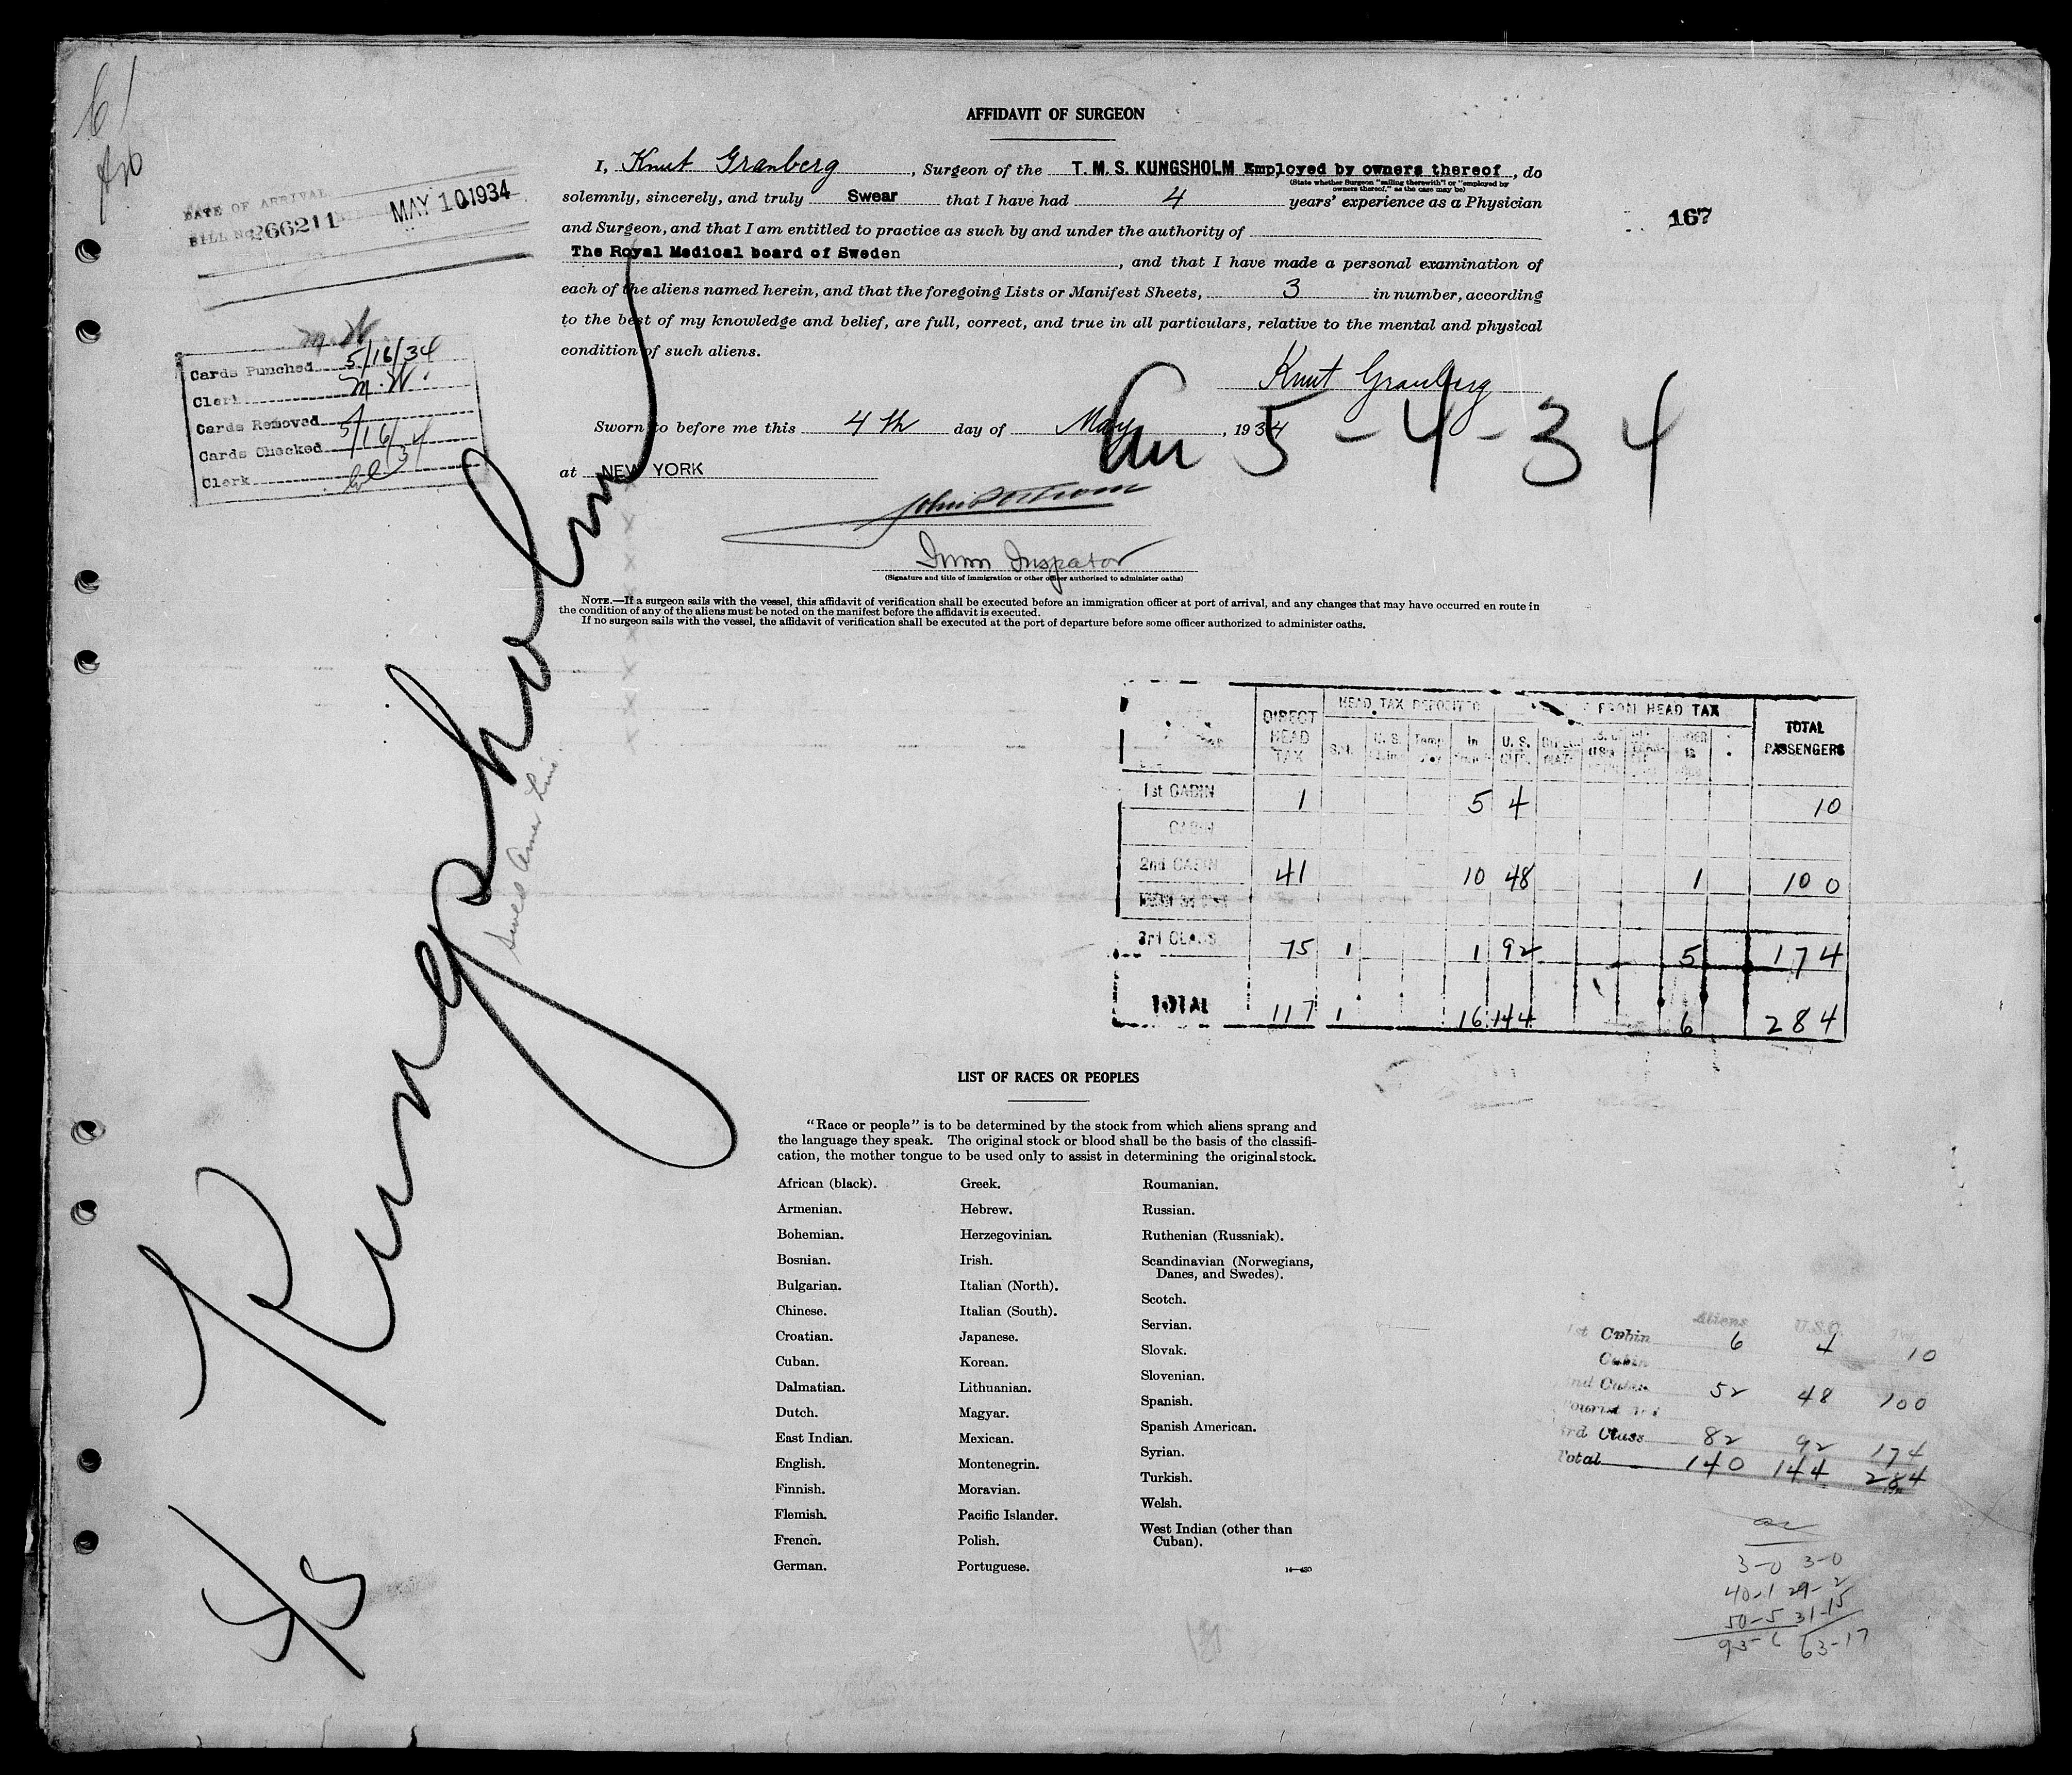 61
AFFIDAVIT OF SURGEON
I, Knut Granberg, Surgeon of the T. M. S. KUNGSHOLM Employed by owners thereof, do
(State whether Surgeon "sailing therewith" or "employed by
owners thereof," as the case may be)
solemnly, sincerely, and truly Swear that I have had 4 years' experience as a Physician
and Surgeon, and that I am entitled to practice as such by and under the authority of
The Royal Medical board of Sweden, and that I have made a personal examination of
each of the aliens named herein, and that the foregoing Lists or Manifest Sheets, 3 in number, according
to the best of my knowledge and belief, are full, correct, and true in all particulars, relative to the mental and physical
condition of such aliens.
Knut Granberg
Sworn to before me this 4th day of May, 1934
at NEW YORK
Immn Inspector
(Signature and title of immigration or other officer authorized to administer oaths)
NOTE.—If a surgeon sails with the vessel, this affidavit of verification shall be executed before an immigration officer at port of arrival, and any changes that may have occurred en route in
the condition of any of the aliens must be noted on the manifest before the affidavit is executed.
If no surgeon sails with the vessel, the affidavit of verification shall be executed at the port of departure before some officer authorized to administer oaths.
167
DATE OF ARRIVAL MAY 10 1934
BILL No. 266211
M.W.
Cards Punched 5/16/34
Clerk M.W.
Cards Removed
Cards Checked 5/16/34
Clerk
Arr 5-4-34
Kungsholm
Swed Amer Line
5/5
DIRECT HEAD TAX HEAD TAX DEPOSITED FROM HEAD TAX TOTAL PASSENGERS
1st CABIN 1 5 4 10
CABIN
2nd CABIN 41 10 48 1 100
3rd CLASS 75 1 1 92 5 174
TOTAL 117 1 16 144 6 284
LIST OF RACES OR PEOPLES
"Race or people" is to be determined by the stock from which aliens sprang and
the language they speak. The original stock or blood shall be the basis of the classifi-
cation, the mother tongue to be used only to assist in determining the original stock.
African (black).
Armenian.
Bohemian.
Bosnian.
Bulgarian.
Chinese.
Croatian.
Cuban.
Dalmatian.
Dutch.
East Indian.
English.
Finnish.
Flemish.
French.
German.
Greek.
Hebrew.
Herzegovinian.
Irish.
Italian (North).
Italian (South).
Japanese.
Korean.
Lithuanian.
Magyar.
Mexican.
Montenegrin.
Moravian.
Pacific Islander.
Polish.
Portuguese.
Roumanian.
Russian.
Ruthenian (Russniak).
Scandinavian (Norwegians,
Danes, and Swedes).
Scotch.
Servian.
Slovak.
Slovenian.
Spanish.
Spanish American.
Syrian.
Turkish.
Welsh.
West Indian (other than
Cuban).
14—430
Aliens U.S.C.
1st Cabin 6 4 10
Cabin
2nd Cabin 52 48 100
Tourist 3rd
3rd Class 82 92 174
Total 140 144 284
3-0 3-0
40-1 29-2
50-5 31-15
93-6 63-17